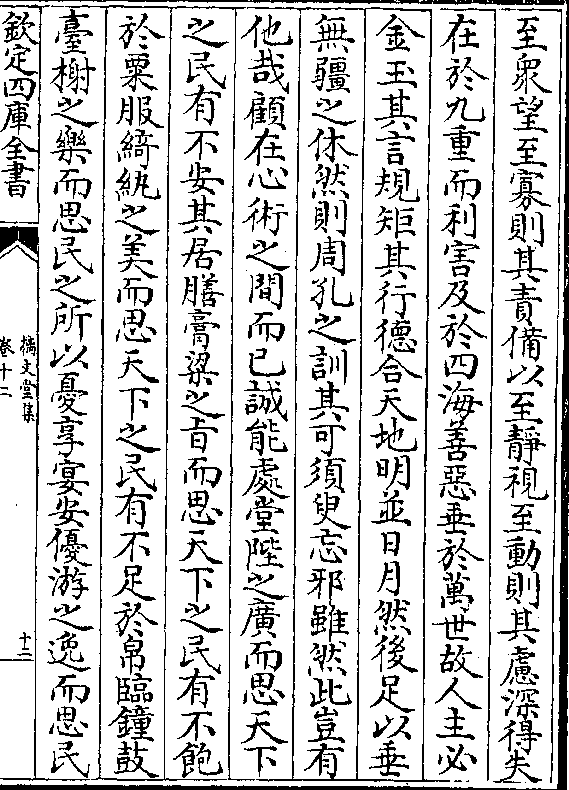 至衆望至寡則其責備以至靜視至動則其慮深得失
在於九重而利害及於四海善惡垂於萬世故人主必
金玉其言規矩其行德合天地明並日月然後足以垂
無疆之休然則周孔之訓其可須臾忘邪雖然此豈有
他哉顧在心術之間而已誠能處堂陛之廣而思天下
之民有不安其居膳膏粱之旨而思天下之民有不飽
於粟服綺紈之美而思天下之民有不足於帛臨鐘鼓
臺榭之樂而思民之所以憂享宴安優游之逸而思民
欽定四庫全書
摛文堂集
卷十二
十三